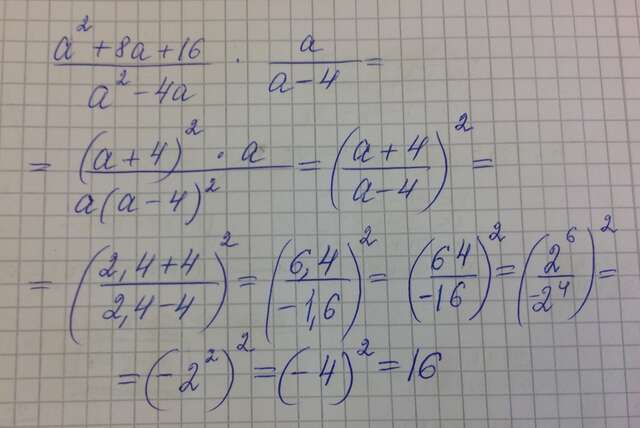 (a² + 8a + 16)/(a² - 4a) · a/(a - 4) =
= ((a + 4)² · a)/(a(a - 4)²) = ((a + 4)/(a - 4))² =
= ((2,4 + 4)/(2,4 - 4))² = (6,4/(-1,6))² = (64/(-16))² = (2⁶/(-2⁴))² =
= (-2²)² = (-4)² = 16